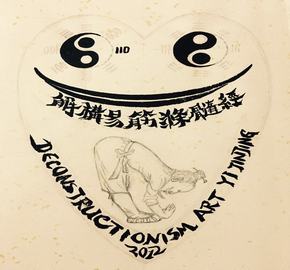 110
橫易筋髓經
DECONSTRUCTIONISM ART YI JINJING
2012